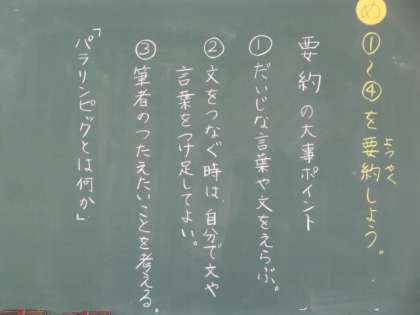 め
①〜④を要約しよう。
ようやく
要約の大事ポイント
①だいじな言葉や文をえらぶ。
②文をつなぐ時は、自分で文や
言葉をつけ足してよい。
③筆者のつたえたいことを考える。
「パラリンピックとは何か」